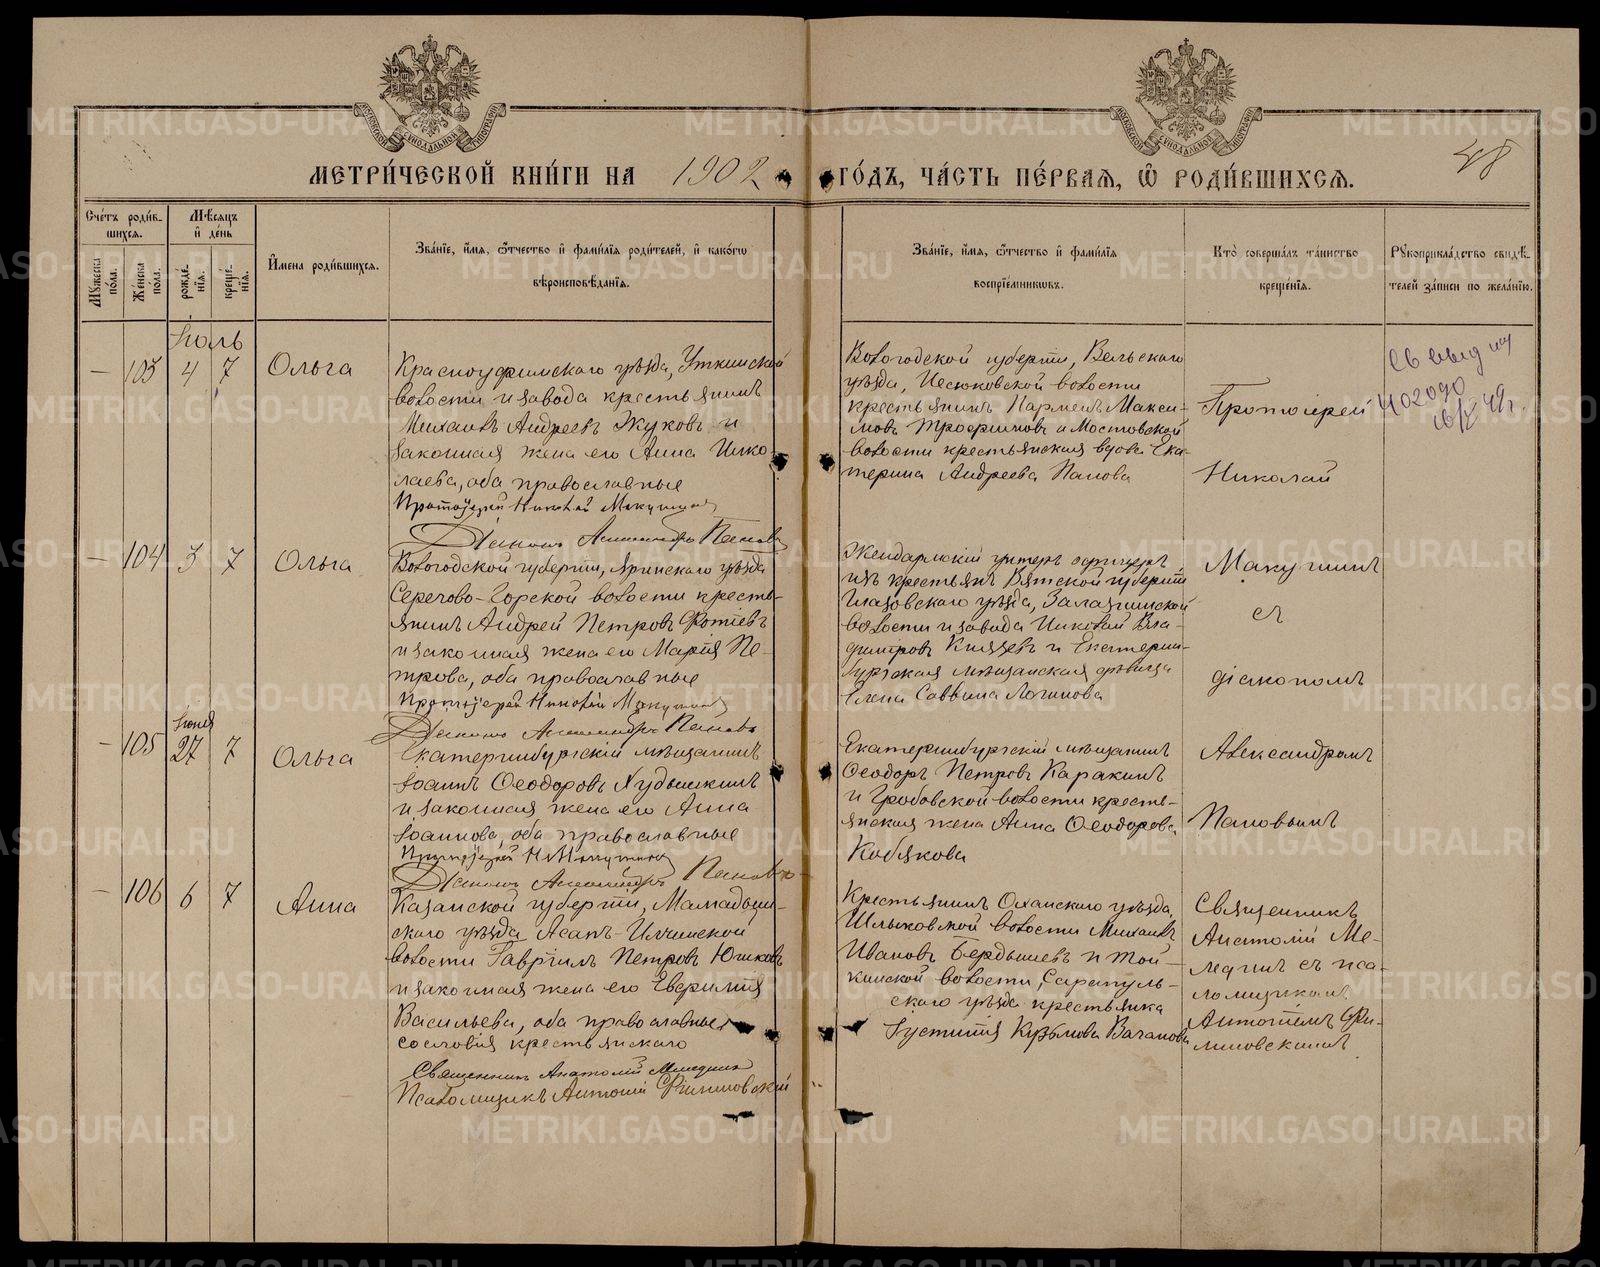 МЕТРИ́ЧЕСКОЙ КНИ́ГИ НА 1902 ГО́ДЪ, ЧА́СТЬ ПЕ́РВАЯ, Ѡ҆ РОДИ́ВШИХСЯ.
48
Сче́тъ роди́в-
шихся.
Мꙋ́жеска по́ла.
Же́нска по́ла.
Мѣ́сяцъ
и҆ де́нь
рожде́-
нїя.
креще́-
нїя.
И҆мена роди́вшихся.
Зва́нїе, и҆́мя, ѻ҆́тчество и҆ фами́лїя роди́телей, и҆ како́гѡ
вѣроисповѣ́данїя.
Зва́нїе, и҆́мя, ѻ҆́тчество и҆ фами́лїя
воспрїе́мникѡвъ.
Кто̀ соверша́лъ та́инство
креще́нїя.
Рꙋкоприкла́дство свидѣ́-
телей за́писи по жела́нїю.
Іюль
– 103 4 7 Ольга
Красноуфимскаго уѣзда, Уткинской
волости и завода крестьянинъ
Михаилъ Андреевъ Жуковъ и
законная жена его Анна Нико-
лаева, оба православные
Протоіерей Николай Макушинъ
Діаконъ Александръ Пановъ
Вологодской губерніи, Вельскаго
уѣзда, Есюковской волости
крестьянинъ Парменъ Макси-
мовъ Трофимовъ и Мостовской
волости крестьянская вдова Ека-
терина Андреева Панова
Протоіерей
Николай
402090
– 104 3 7 Ольга
Вологодской губерніи, Яринскаго уѣзда
Серегово-Горской волости кресть-
янинъ Андрей Петровъ Фотіевъ
и законная жена его Марія Пе-
трова, оба православные
Протоіерей Николай Макушинъ
Діаконъ Александръ Пановъ
Жендармскій унтеръ офицеръ,
изъ крестьянъ Вятской губерніи
Глазовскаго уѣзда, Залазнинской
волости и завода Николай Вла-
димировъ Князевъ и Екатерин-
бургская мѣщанская дѣвица
Елена Саввина Логинова
Макушинъ
съ
діакономъ
Іюня
– 105 27 7 Ольга
Екатеринбургскій мѣщанинъ
Іоаннъ Ѳеодоровъ Худышкинъ
и законная жена его Анна
Іоаннова, оба православные
Протоіерей Н Макушинъ
Діаконъ Александръ Пановъ
Екатеринбургскій мѣщанинъ
Ѳеодоръ Петровъ Каракинъ
и Гробовской волости кресть-
янская жена Анна Ѳеодорова
Кобякова
Александромъ
Пановымъ
– 106 6 7 Анна
Казанской губерніи, Мамадыш-
скаго уѣзда, Асанъ-Илчинской
волости Гавріилъ Петровъ Юшковъ
и законная жена его Евфимія
Васильева, оба православные,
сословія крестьянскаго
Священникъ Анатолій Меледин
Псаломщикъ Антоній Филиповскій
Крестьянинъ Оханскаго уѣзда,
Шлыковской волости Михаилъ
Ивановъ Бердышевъ и Той-
кинской волости, Сарапуль-
скаго уѣзда крестьянка
Іустинія Кузьмова Ваганова
Священникъ
Анатолій Ме-
лединъ съ пса-
ломщикомъ
Антоніемъ Фи-
липовскимъ
METRIKI.GASO-URAL.RU